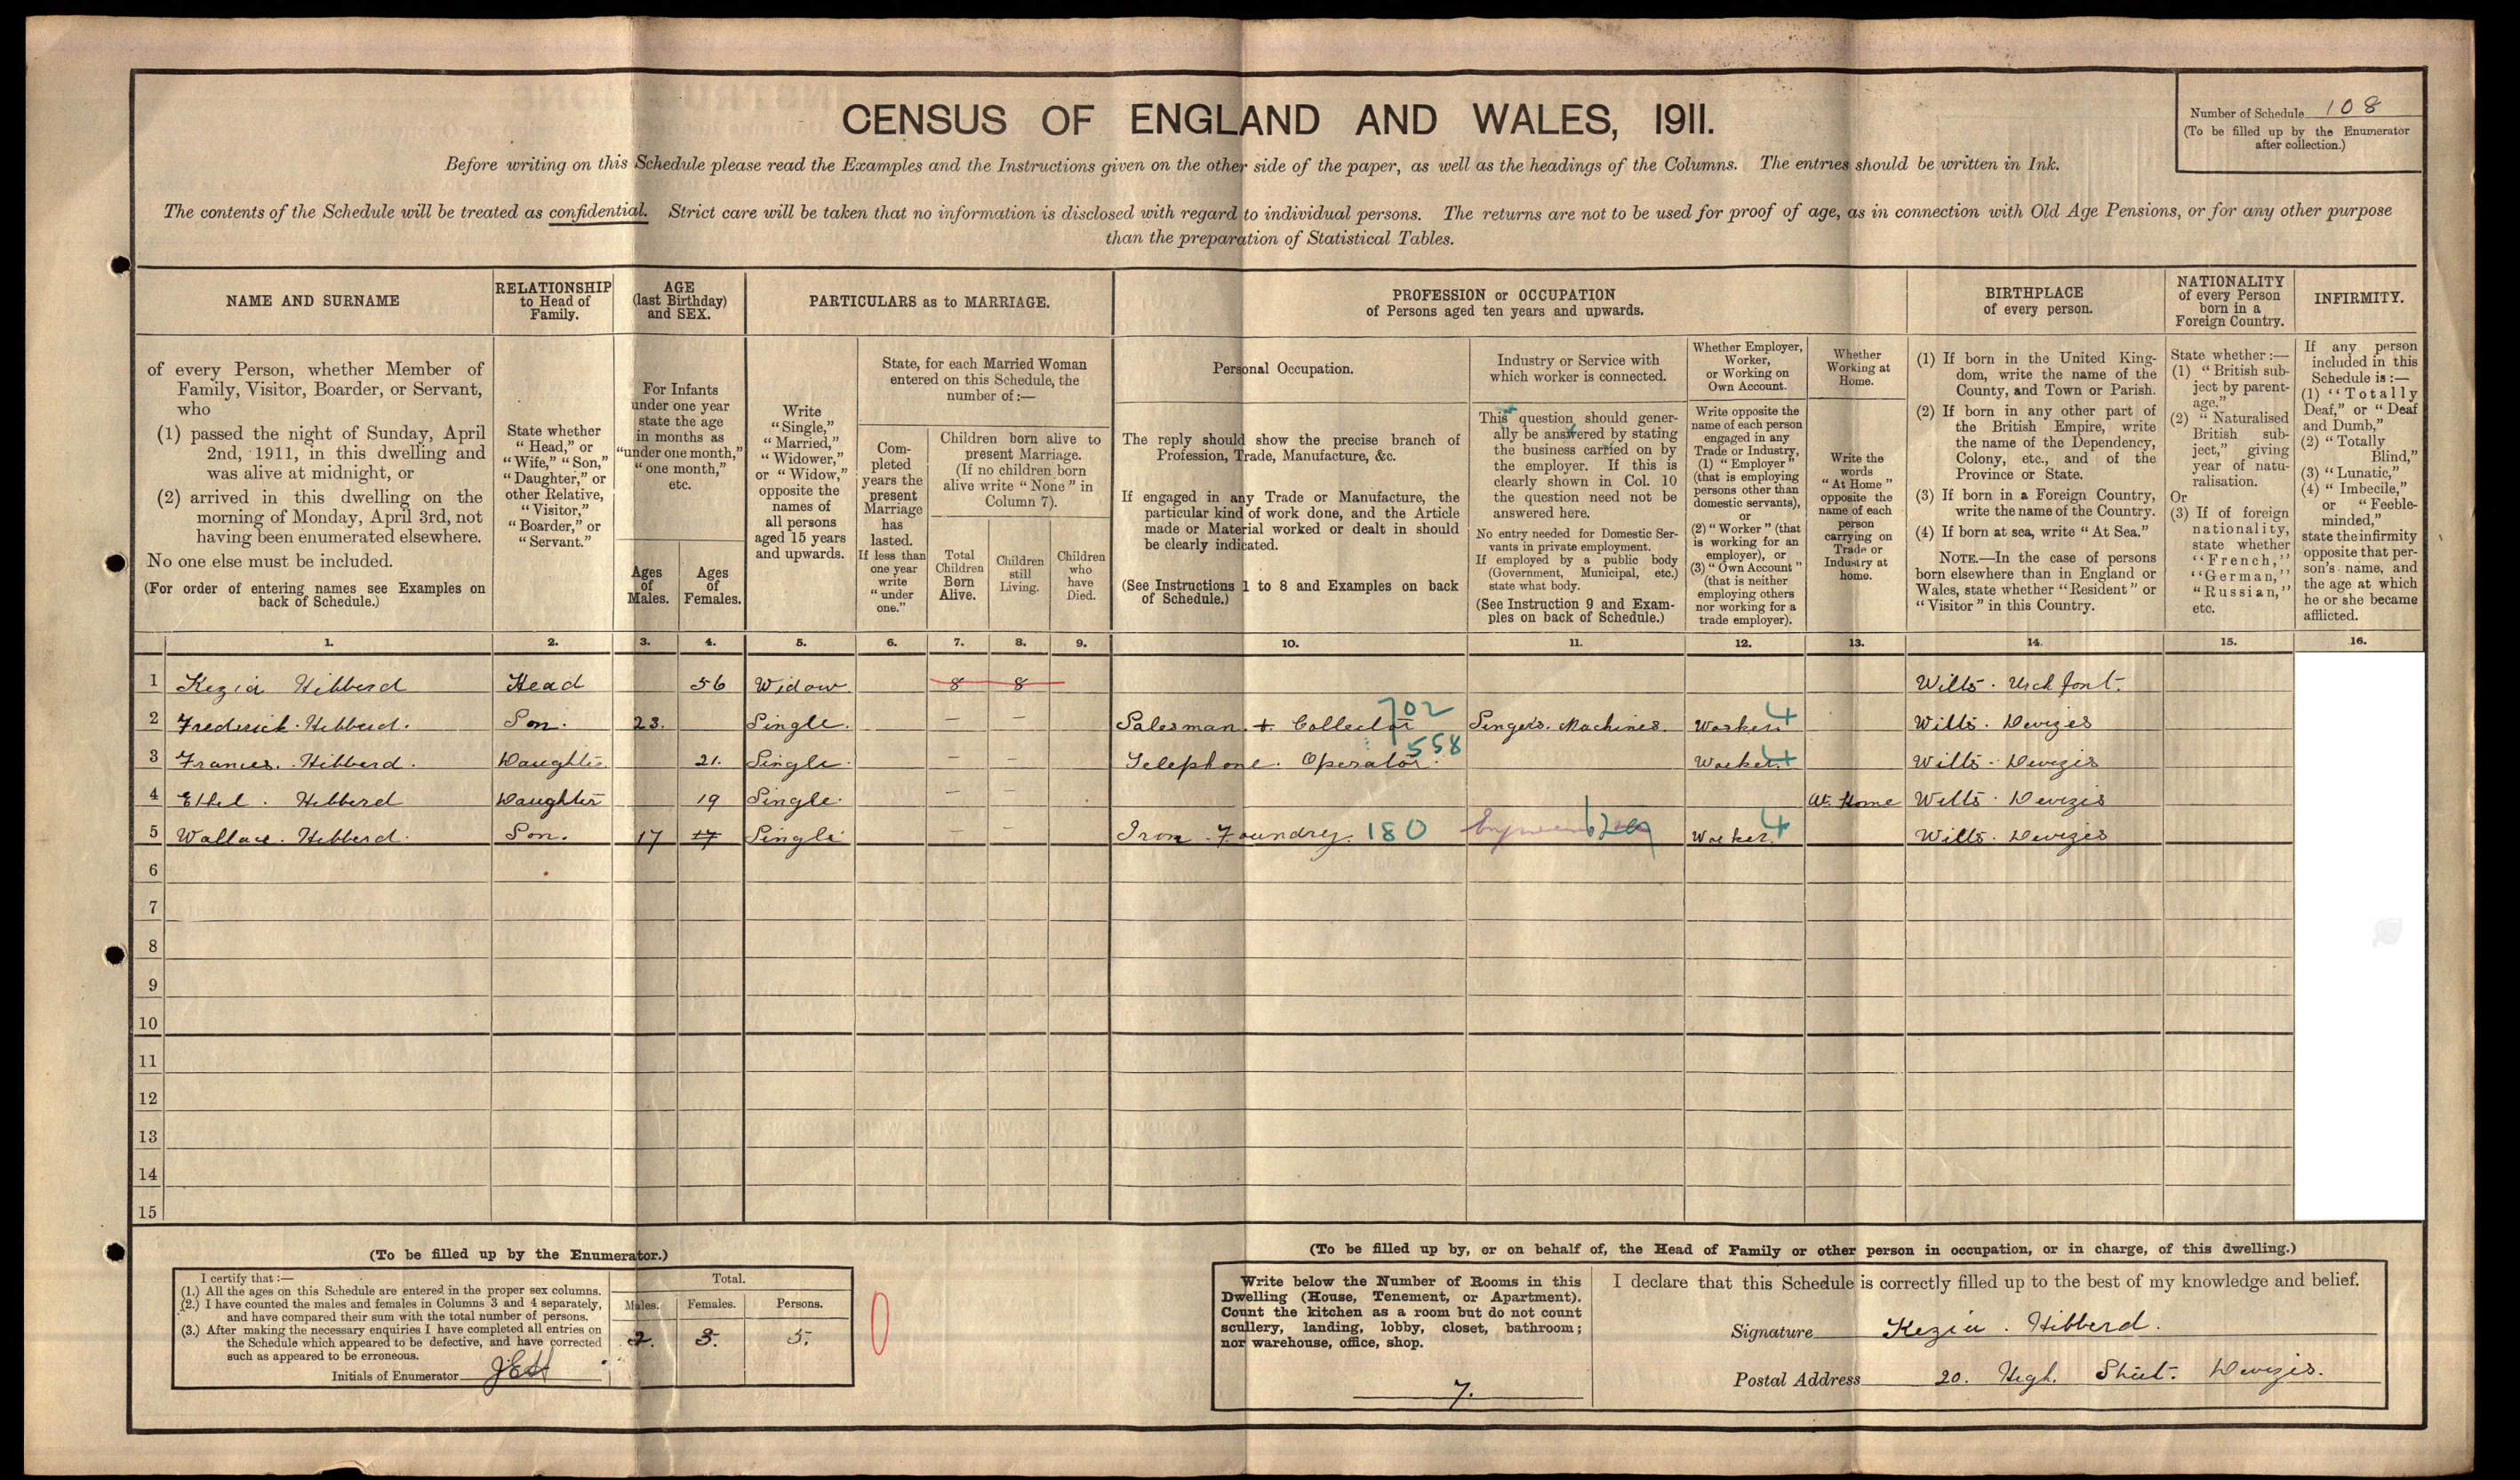 CENSUS OF ENGLAND AND WALES, 1911.
Number of Schedule 108
(To be filled up by the Enumerator
after collection.)
Before writing on this Schedule please read the Examples and the Instructions given on the other side of the paper, as well as the headings of the Columns. The entries should be written in Ink.
The contents of the Schedule will be treated as confidential. Strict care will be taken that no information is disclosed with regard to individual persons. The returns are not to be used for proof of age, as in connection with Old Age Pensions, or for any other purpose
than the preparation of Statistical Tables.
NAME AND SURNAME
of every Person, whether Member of
Family, Visitor, Boarder, or Servant,
who
(1) passed the night of Sunday, April
2nd, 1911, in this dwelling and
was alive at midnight, or
(2) arrived in this dwelling on the
morning of Monday, April 3rd, not
having been enumerated elsewhere.
No one else must be included.
(For order of entering names see Examples on
back of Schedule.)
RELATIONSHIP
to Head of
Family.
State whether
"Head," or
"Wife," "Son,"
"Daughter," or
other Relative,
"Visitor,"
"Boarder," or
"Servant."
AGE
(last Birthday)
and SEX.
For Infants
under one year
state the age
in months as
"under one month,"
"one month,"
etc.
Ages
of
Males.
Ages
of
Females.
PARTICULARS as to MARRIAGE.
Write
"Single,"
"Married,"
"Widower,"
or "Widow,"
opposite the
names of
all persons
aged 15 years
and upwards.
State, for each Married Woman
entered on this Schedule, the
number of:—
Com-
pleted
years the
present
Marriage
has
lasted.
If less than
one year
write
"under
one."
Children born alive to
present Marriage.
(If no children born
alive write "None" in
Column 7).
Total
Children
Born
Alive.
Children
still
Living.
Children
who
have
Died.
PROFESSION or OCCUPATION
of Persons aged ten years and upwards.
Personal Occupation.
The reply should show the precise branch of
Profession, Trade, Manufacture, &c.
If engaged in any Trade or Manufacture, the
particular kind of work done, and the Article
made or Material worked or dealt in should
be clearly indicated.
(See Instructions 1 to 8 and Examples on back
of Schedule.)
Industry or Service with
which worker is connected.
This question should gener-
ally be answered by stating
the business carried on by
the employer. If this is
clearly shown in Col. 10
the question need not be
answered here.
No entry needed for Domestic Ser-
vants in private employment.
If employed by a public body
(Government, Municipal, etc.)
state what body.
(See Instruction 9 and Exam-
ples on back of Schedule.)
Whether Employer,
Worker,
or Working on
Own Account.
Write opposite the
name of each person
engaged in any
Trade or Industry,
(1) "Employer"
(that is employing
persons other than
domestic servants),
or
(2) "Worker" (that
is working for an
employer), or
(3) "Own Account"
(that is neither
employing others
nor working for a
trade employer).
Whether
Working at
Home.
Write the
words
"At Home"
opposite the
name of each
person
carrying on
Trade or
Industry at
home.
BIRTHPLACE
of every person.
(1) If born in the United King-
dom, write the name of the
County, and Town or Parish.
(2) If born in any other part of
the British Empire, write
the name of the Dependency,
Colony, etc., and of the
Province or State.
(3) If born in a Foreign Country,
write the name of the Country.
(4) If born at sea, write "At Sea."
NOTE.—In the case of persons
born elsewhere than in England or
Wales, state whether "Resident" or
"Visitor" in this Country.
NATIONALITY
of every Person
born in a
Foreign Country.
State whether:—
(1) "British sub-
ject by parent-
age."
(2) "Naturalised
British sub-
ject," giving
year of natu-
ralisation.
Or
(3) If of foreign
nationality,
state whether
"French,"
"German,"
"Russian,"
etc.
INFIRMITY.
If any person
included in this
Schedule is:—
(1) "Totally
Deaf," or "Deaf
and Dumb,"
(2) "Totally
Blind,"
(3) "Lunatic,"
(4) "Imbecile,"
or "Feeble-
minded,"
state the infirmity
opposite that per-
son's name, and
the age at which
he or she became
afflicted.
1. 2. 3. 4. 5. 6. 7. 8. 9. 10. 11. 12. 13. 14. 15. 16.
1 Kezia Hibberd Head 56 Widow 8 8 Wilts. Urchfont.
2 Frederick. Hibberd. Son. 23. Single. — — Salesman + Collector 702 Singers. Machines. Worker 4 Wilts. Devizes
3 Frances. Hibberd. Daughter 21. Single. — — Telephone. Operator. 558 Worker 4 Wilts. Devizes
4 Ethel. Hibberd Daughter 19 Single. — — At Home Wilts. Devizes
5 Wallace. Hibberd. Son. 17 17 Single — — Iron Foundry. 180 Worker 4 Wilts. Devizes
6
7
8
9
10
11
12
13
14
15
(To be filled up by the Enumerator.)
I certify that:—
(1.) All the ages on this Schedule are entered in the proper sex columns.
(2.) I have counted the males and females in Columns 3 and 4 separately,
and have compared their sum with the total number of persons.
(3.) After making the necessary enquiries I have completed all entries on
the Schedule which appeared to be defective, and have corrected
such as appeared to be erroneous.
Initials of Enumerator
Total.
Males. Females. Persons.
2. 3. 5.
0
(To be filled up by, or on behalf of, the Head of Family or other person in occupation, or in charge, of this dwelling.)
Write below the Number of Rooms in this
Dwelling (House, Tenement, or Apartment).
Count the kitchen as a room but do not count
scullery, landing, lobby, closet, bathroom;
nor warehouse, office, shop.
7.
I declare that this Schedule is correctly filled up to the best of my knowledge and belief.
Signature Kezia. Hibberd.
Postal Address 20. High. Street. Devizes.